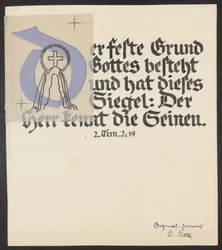 Der feste Grund
Gottes besteht
und hat dieses
Siegel: Der
Herr kennt die Seinen.
2. Tim. 2, 19
Original-Entwurf